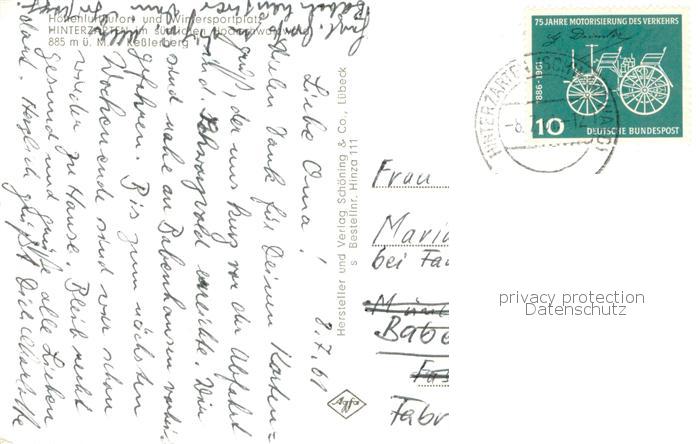 Höhenluftkurort und Wintersportplatz
HINTERZARTEN im südlichen Hochschwarzwald
885 m ü. M. Keßlerberg
8.7.61
Liebe Oma!
Vielen Dank für Deinen Karten-
gruß, der uns kurz vor der Abfahrt
Schwarzwald erreichte. Wir
sind nahe an Babenhausen vorbei
gefahren. Bis zum nächsten
Wochenende sind wir schon
wieder zu Hause. Bleib recht
gesund und grüße alle Lieben
Herzlich grüßt Dich
Hersteller und Verlag Schöning & Co., Lübeck
s Bestellnr. Hinza 111
Agfa
75 JAHRE MOTORISIERUNG DES VERKEHRS
G Daimler
1886-1961
10 DEUTSCHE BUNDESPOST
HINTERZARTEN
Frau
Maria
bei Fa
Babe
Fabr
privacy protection
Datenschutz